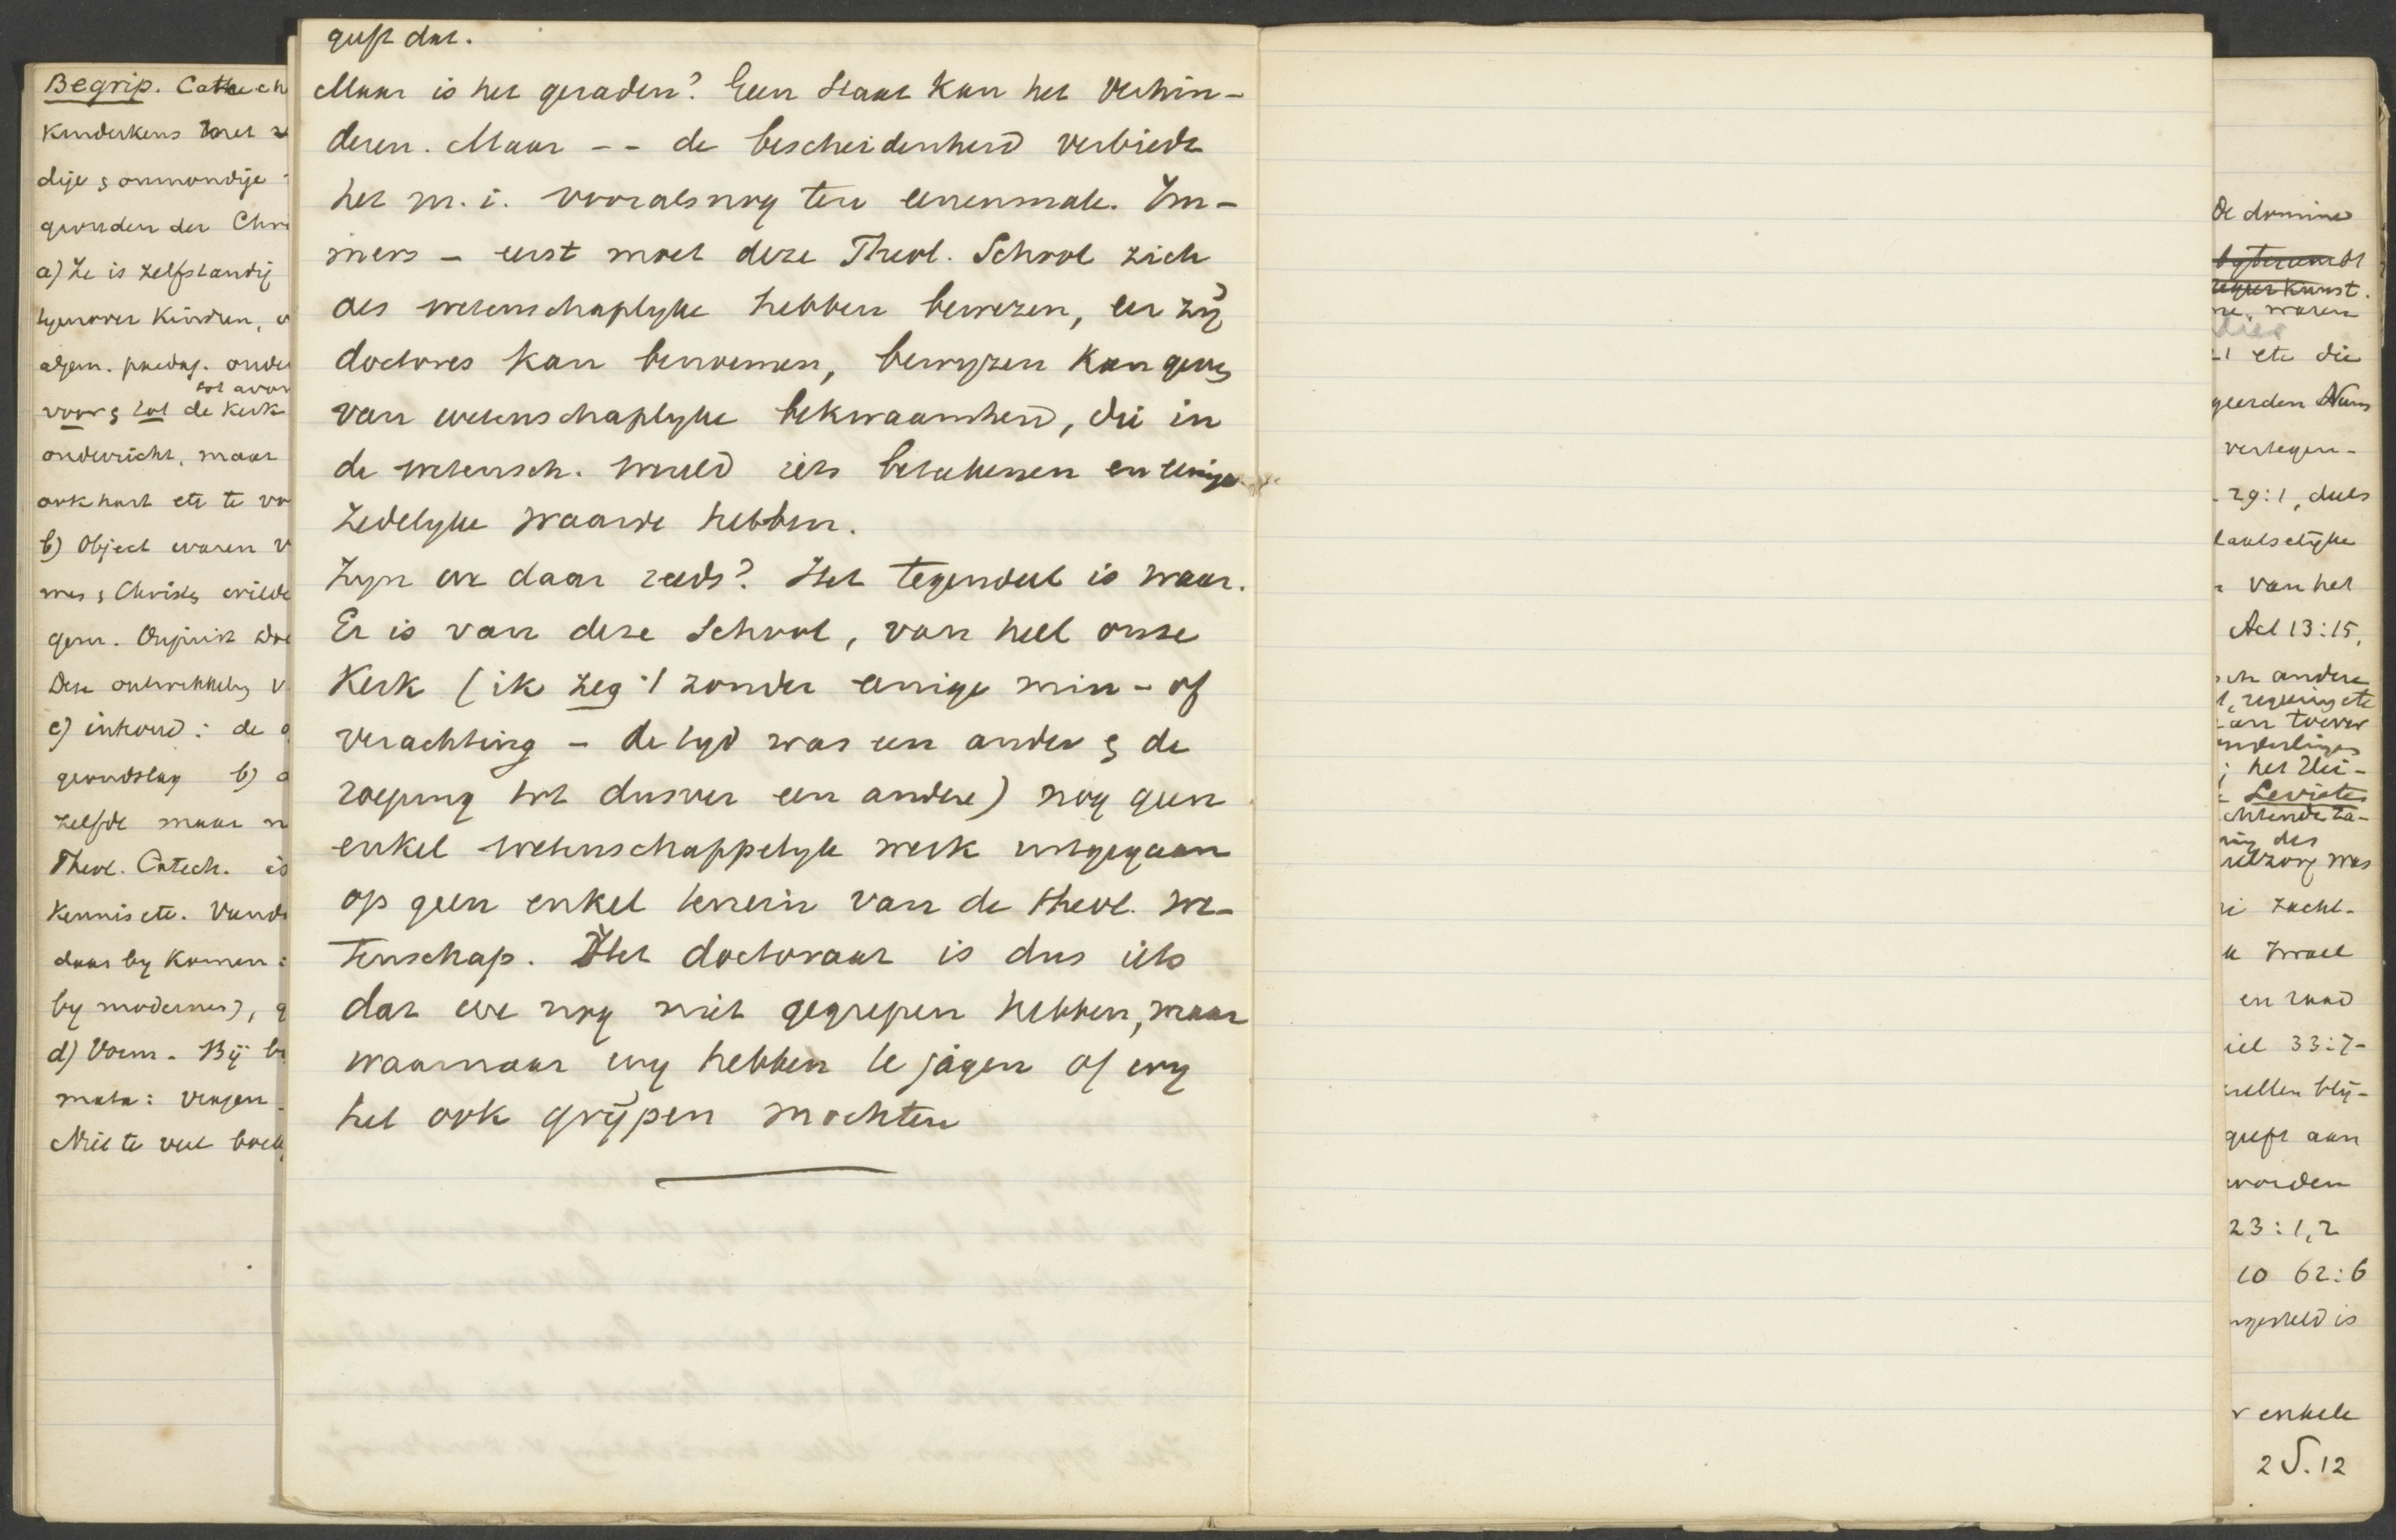 Begrip. Catech
Kinderkens
dije & onmondije
gronden der Chr
a) Ze is zelfstandig
tegenover Kindren,
algem. paedag. onder
voor & tot de Kerk
onderricht, maar
ook hart etc te
b) Object waren
mes & Christ& wilde
gem.
Deze ontwikkeling v
c) inhoud: de
grondslag b)
zelfde maar n
Theol. Catech. is
Kennis etc.
daar by Komen:
by modernes),
d) Vorm - Bij
mata: vragen -
Niet te veel
geeft dat.
Maar is het geraden? Geen Staat kan het verhin-
deren. Maar -- de bescheidenheid verbiedt
het m. i. vooralsnog ten eenenmale. Im-
mers - eerst moet deze Theol. School zich
als wetenschaplyke hebben bewezen, eer zij
doctores kan benoemen, bewyzen kan gev&
van wetenschaplyke bekwaamheid, die in
de wetensch. wereld iets beteekenen en eenige
zedelyke waarde hebben.
Zyn we daar reeds? Het tegendeel is waar.
Er is van deze School, van heel onze
Kerk (ik zeg 't zonder eenige min- of
verachting - de tyd was een ander & de
roeping tot dusver een andere) nog geen
enkel wetenschappelyk werk uitgegaan
op geen enkel terrein van de theol. we-
tenschap. Het doctoraat is dus iets
dat we nog niet gegrepen hebben, maar
waarnaar wy hebben te jagen of wy
het ook grijpen mochten
De domine
kunst.
ne, waren
etc die
geerden
vertegen-
29:1, deels
laatselijke
van het
Act 13:15,
andere
regering etc
van toever
onderlinge
; het Hei-
Levieten
des
zielzorg was
zacht-
Israel
en raad
iel 33:7-
zullen blij-
geeft aan
worden
23:1,2
10 62:6
ngesteld is
enkele
2 S. 12